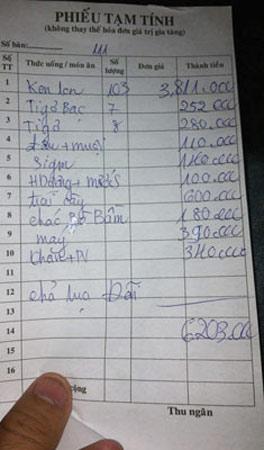 PHIẾU TẠM TÍNH
(không thay thế hóa đơn giá trị gia tăng)
Số bàn: 111
Số TT Thức uống / món ăn Số lượng Đơn giá Thành tiền
1 Ken lon 103 3,811.000
2 Tigơ Bạc 7 252.000
3 Tigơ 8 280.000
4 110.000
5 140.000
6 100.000
7 trái cây 600.000
8 180.000
9 390.000
10 Khăn + 340.000
11
12 chả lụa
13
14 6203.000
15
16
cộng
Thu ngân